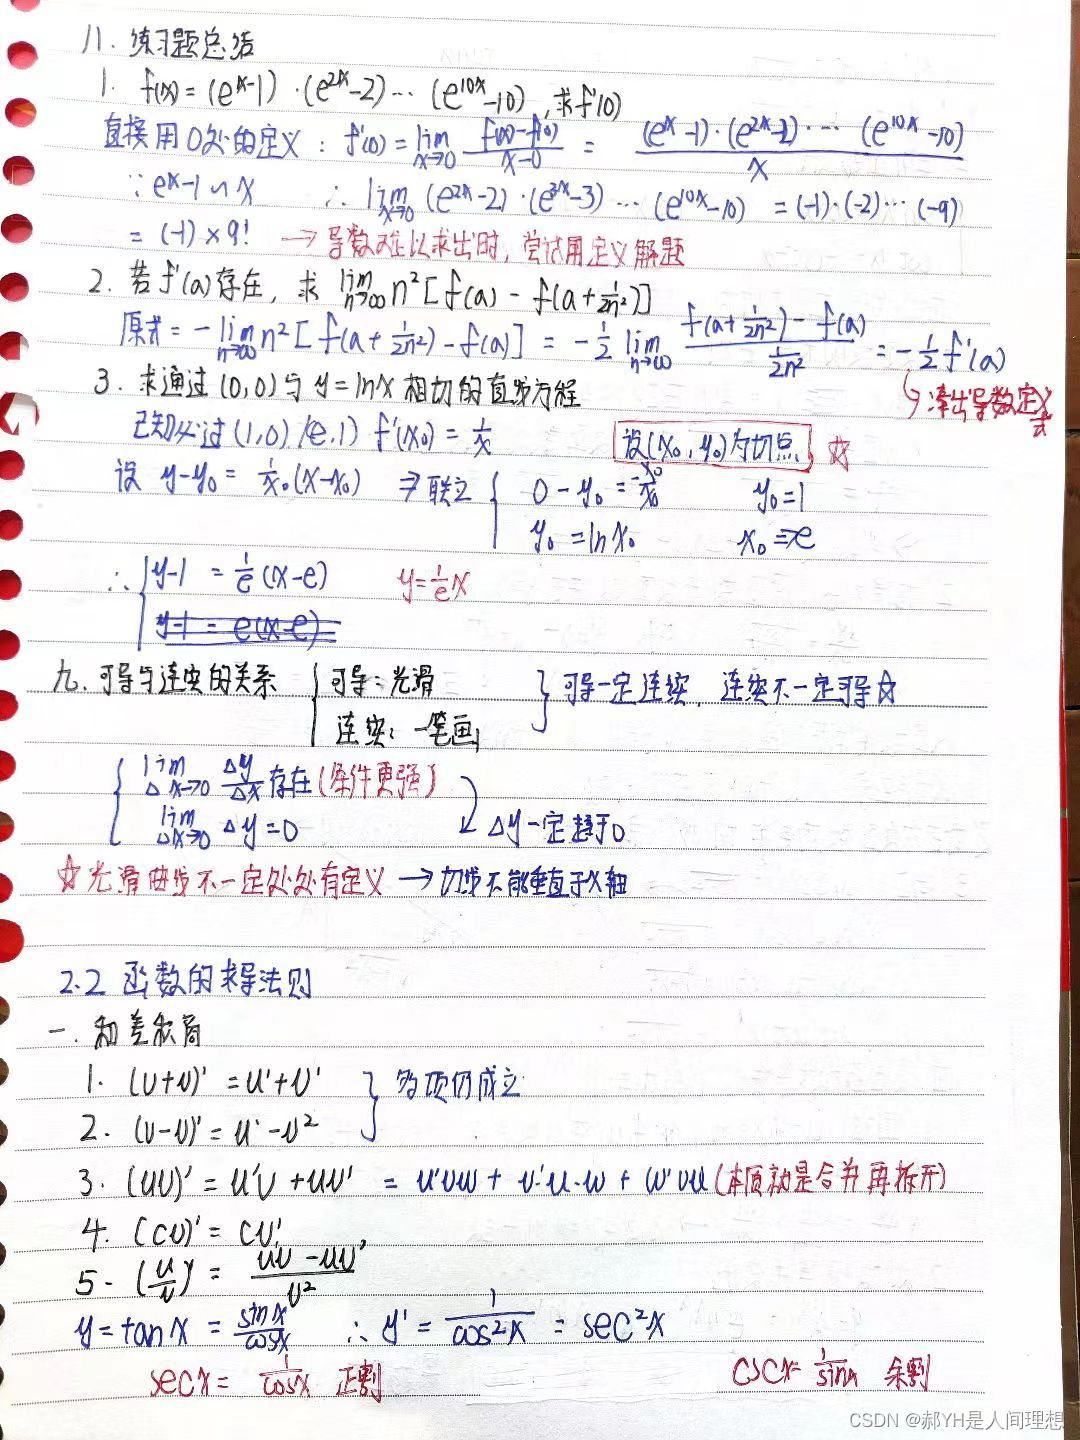 八. 练习题总结
1. f(x) = (e^x-1)·(e^{2x}-2)…(e^{10x}-10), 求f'(0)
直接用0处的定义: f'(0) = lim_{x→0} \frac{f(x)-f(0)}{x-0} = \frac{(e^x-1)·(e^{2x}-2)·…(e^{10x}-10)}{x}
∵ e^x-1 ∽ x ∴ lim_{x→0} (e^{2x}-2)·(e^{3x}-3)…(e^{10x}-10) = (-1)·(-2)…(-9)
= (-1)×9! → 导数难以求出时, 尝试用定义解题
2. 若f'(a)存在, 求 lim_{n→∞} n²[f(a) - f(a+\frac{1}{2n²})]
原式 = -lim_{n→∞} n²[f(a+\frac{1}{2n²})-f(a)] = -\frac{1}{2} lim_{n→∞} \frac{f(a+\frac{1}{2n²})-f(a)}{\frac{1}{2n²}} = -\frac{1}{2}f'(a)
→凑出导数定义式
3. 求通过(0,0)与y=lnx相切的直线方程
已知必过(1,0)/(e,1) f'(x₀) = \frac{1}{x} 设(x₀,y₀)为切点 ☆
设 y-y₀ = \frac{1}{x₀}(x-x₀) ⇒ 联立 { 0-y₀ = -\frac{x₀}{x₀} y₀=1
y₀ = lnx₀ x₀=e
∴ { y-1 = \frac{1}{e}(x-e) y=\frac{1}{e}x
y-1 = e(x-e)
九. 可导与连续的关系 { 可导: 光滑 } 可导一定连续, 连续不一定可导☆
连续: 一笔画
{ lim_{Δx→0} \frac{Δy}{Δx} 存在(条件更强)
lim_{Δx→0} Δy=0 Δy一定趋于0
☆光滑曲线不一定处处有定义 → 切线不能垂直于x轴
2.2 函数的求导法则
一. 和差积商
1. (u+v)' = u'+v' } 多项仍成立
2. (u-v)' = u'-v²
3. (uv)' = u'v+uv' = u'vw + v'·u·w + w'vu (本质就是合并再拆开)
4. (cu)' = cu'
5. (\frac{u}{v})' = \frac{uv-uv'}{v²}
y=tanx = \frac{sinx}{cosx} ∴ y' = \frac{1}{cos²x} = sec²x
secx = \frac{1}{cosx} 正割 cscx= \frac{1}{sinx} 余割
CSDN @郝YH是人间理想